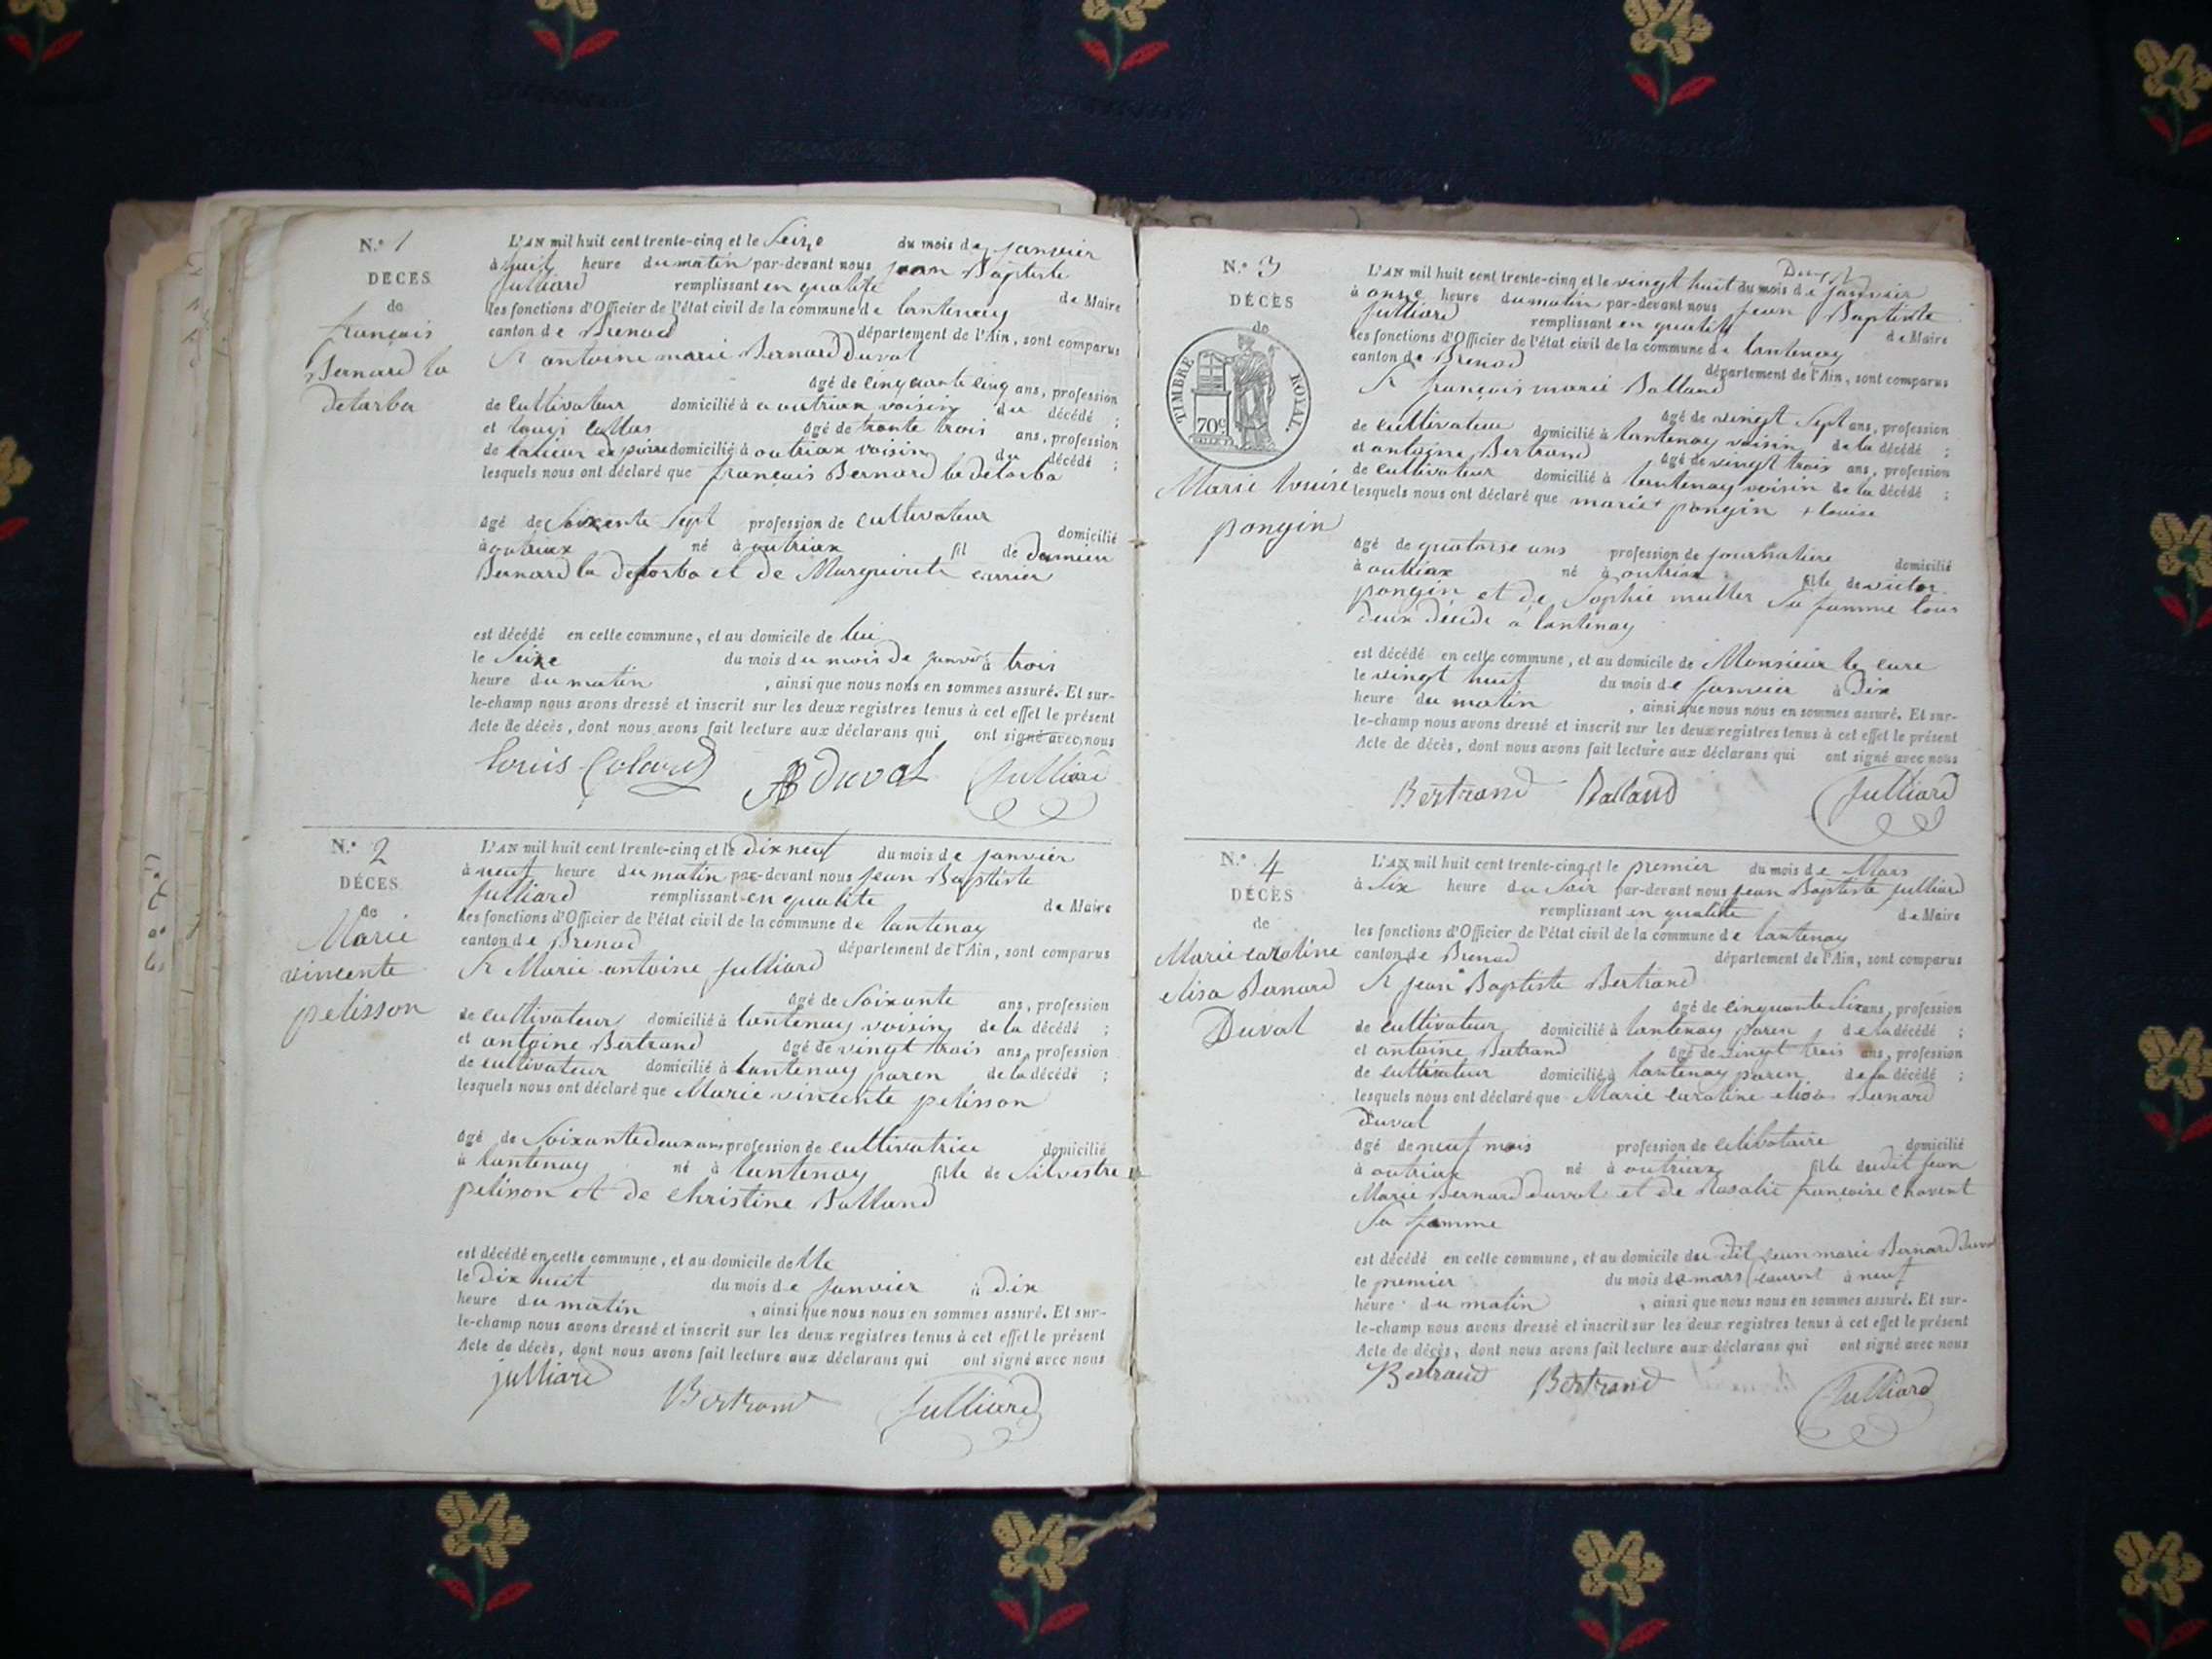 N.° 1
DÉCÈS
de
françois
Bernard la
detarba
L'AN mil huit cent trente-cinq et le Seize du mois de janvier
à huit heure du matin par-devant nous jean Baptiste
Julliard remplissant en qualité de Maire
les fonctions d'Officier de l'état civil de la commune de lantenay
canton de Brenod département de l'Ain, sont comparus
Sr antoine marie Bernard duval
âgé de cinquante cinq ans, profession
de cultivateur domicilié à outriax voisin du décédé ;
et âgé de trante trois ans, profession
de domicilié à outriax voisin du décédé ;
lesquels nous ont déclaré que françois Bernard la detarba
âgé de Soixente Sept profession de cultivateur domicilié
à outriax né à outriax fil de damien
Bernard la detarba et de Marguerite carrier
est décédé en cette commune, et au domicile de lui
le Seize du mois du mois de janvier à trois
heure du matin , ainsi que nous nous en sommes assuré. Et sur-
le-champ nous avons dressé et inscrit sur les deux registres tenus à cet effet le présent
Acte de décès, dont nous avons fait lecture aux déclarans qui ont signé avec nous
louis AB duval Julliard
N.° 2
DÉCÈS
de
Marie
vincente
pelisson
L'AN mil huit cent trente-cinq et le dix neuf du mois de janvier
à neuf heure du matin par-devant nous jean Baptiste
Julliard remplissant en qualité de Maire
les fonctions d'Officier de l'état civil de la commune de lantenay
canton de Brenod département de l'Ain, sont comparus
Sr Marie antoine julliard
âgé de Soixante ans, profession
de cultivateur domicilié à lantenay voisin de la décédé ;
et antoine Bertrand âgé de vingt trois ans, profession
de cultivateur domicilié à lantenay paren de la décédé ;
lesquels nous ont déclaré que Marie vincente pelisson
âgé de Soixante deux ans profession de cultivatrice domicilié
à lantenay né à lantenay fille de Silvestre
pelisson et de christine Balland
est décédé en cette commune, et au domicile de lle
le dix huit du mois de janvier à dix
heure du matin , ainsi que nous nous en sommes assuré. Et sur-
le-champ nous avons dressé et inscrit sur les deux registres tenus à cet effet le présent
Acte de décès, dont nous avons fait lecture aux déclarans qui ont signé avec nous
julliard Bertrand Julliard
N.° 3
DÉCÈS
de
TIMBRE ROYAL.
70c
Marie louise
pongin
L'AN mil huit cent trente-cinq et le vingt huit du mois de janvier
à onze heure du matin par-devant nous jean Baptiste
Julliard remplissant en qualité de Maire
les fonctions d'Officier de l'état civil de la commune de lantenay
canton de Brenod département de l'Ain, sont comparus
Sr françois marie Balland
âgé de vingt Sept ans, profession
de cultivateur domicilié à lantenay voisin de la décédé ;
et antoine Bertrand âgé de vingt trois ans, profession
de cultivateur domicilié à lantenay voisin de la décédé ;
lesquels nous ont déclaré que marie pongin + louise
âgé de quatorse ans profession de journaliere domicilié
à outriax né à outriax fille de victor
pongin et de Sophie muller Sa famme tous
deux décédé a lantenay
est décédé en cette commune, et au domicile de Monsieur le cure
le vingt huit du mois de janvier à dix
heure du matin , ainsi que nous nous en sommes assuré. Et sur-
le-champ nous avons dressé et inscrit sur les deux registres tenus à cet effet le présent
Acte de décès, dont nous avons fait lecture aux déclarans qui ont signé avec nous
Bertrand Balland Julliard
N.° 4
DÉCÈS
de
Marie caroline
elisa Bernard
Duval
L'AN mil huit cent trente-cinq et le premier du mois de Mars
à Six heure du Soir par-devant nous jean Baptiste julliard
remplissant en qualité de Maire
les fonctions d'Officier de l'état civil de la commune de lantenay
canton de Brenod département de l'Ain, sont comparus
Sr jean Baptiste Bertrand
âgé de cinquante Six ans, profession
de cultivateur domicilié à lantenay paren de la décédé ;
et antoine Bertrand âgé de vingt trois ans, profession
de cultivateur domicilié à lantenay paren de la décédé ;
lesquels nous ont déclaré que Marie caroline elisa Bernard
duval
âgé de neuf mois profession de celibataire domicilié
à outriax né à outriax fille dudit jean
Marie Bernard duval et de Rosalie françoise chavent
Sa famme
est décédé en cette commune, et au domicile du dit jean marie Bernard duval
le premier du mois de mars courent à neuf
heure du matin , ainsi que nous nous en sommes assuré. Et sur-
le-champ nous avons dressé et inscrit sur les deux registres tenus à cet effet le présent
Acte de décès, dont nous avons fait lecture aux déclarans qui ont signé avec nous
Bertrand Bertrand Julliard